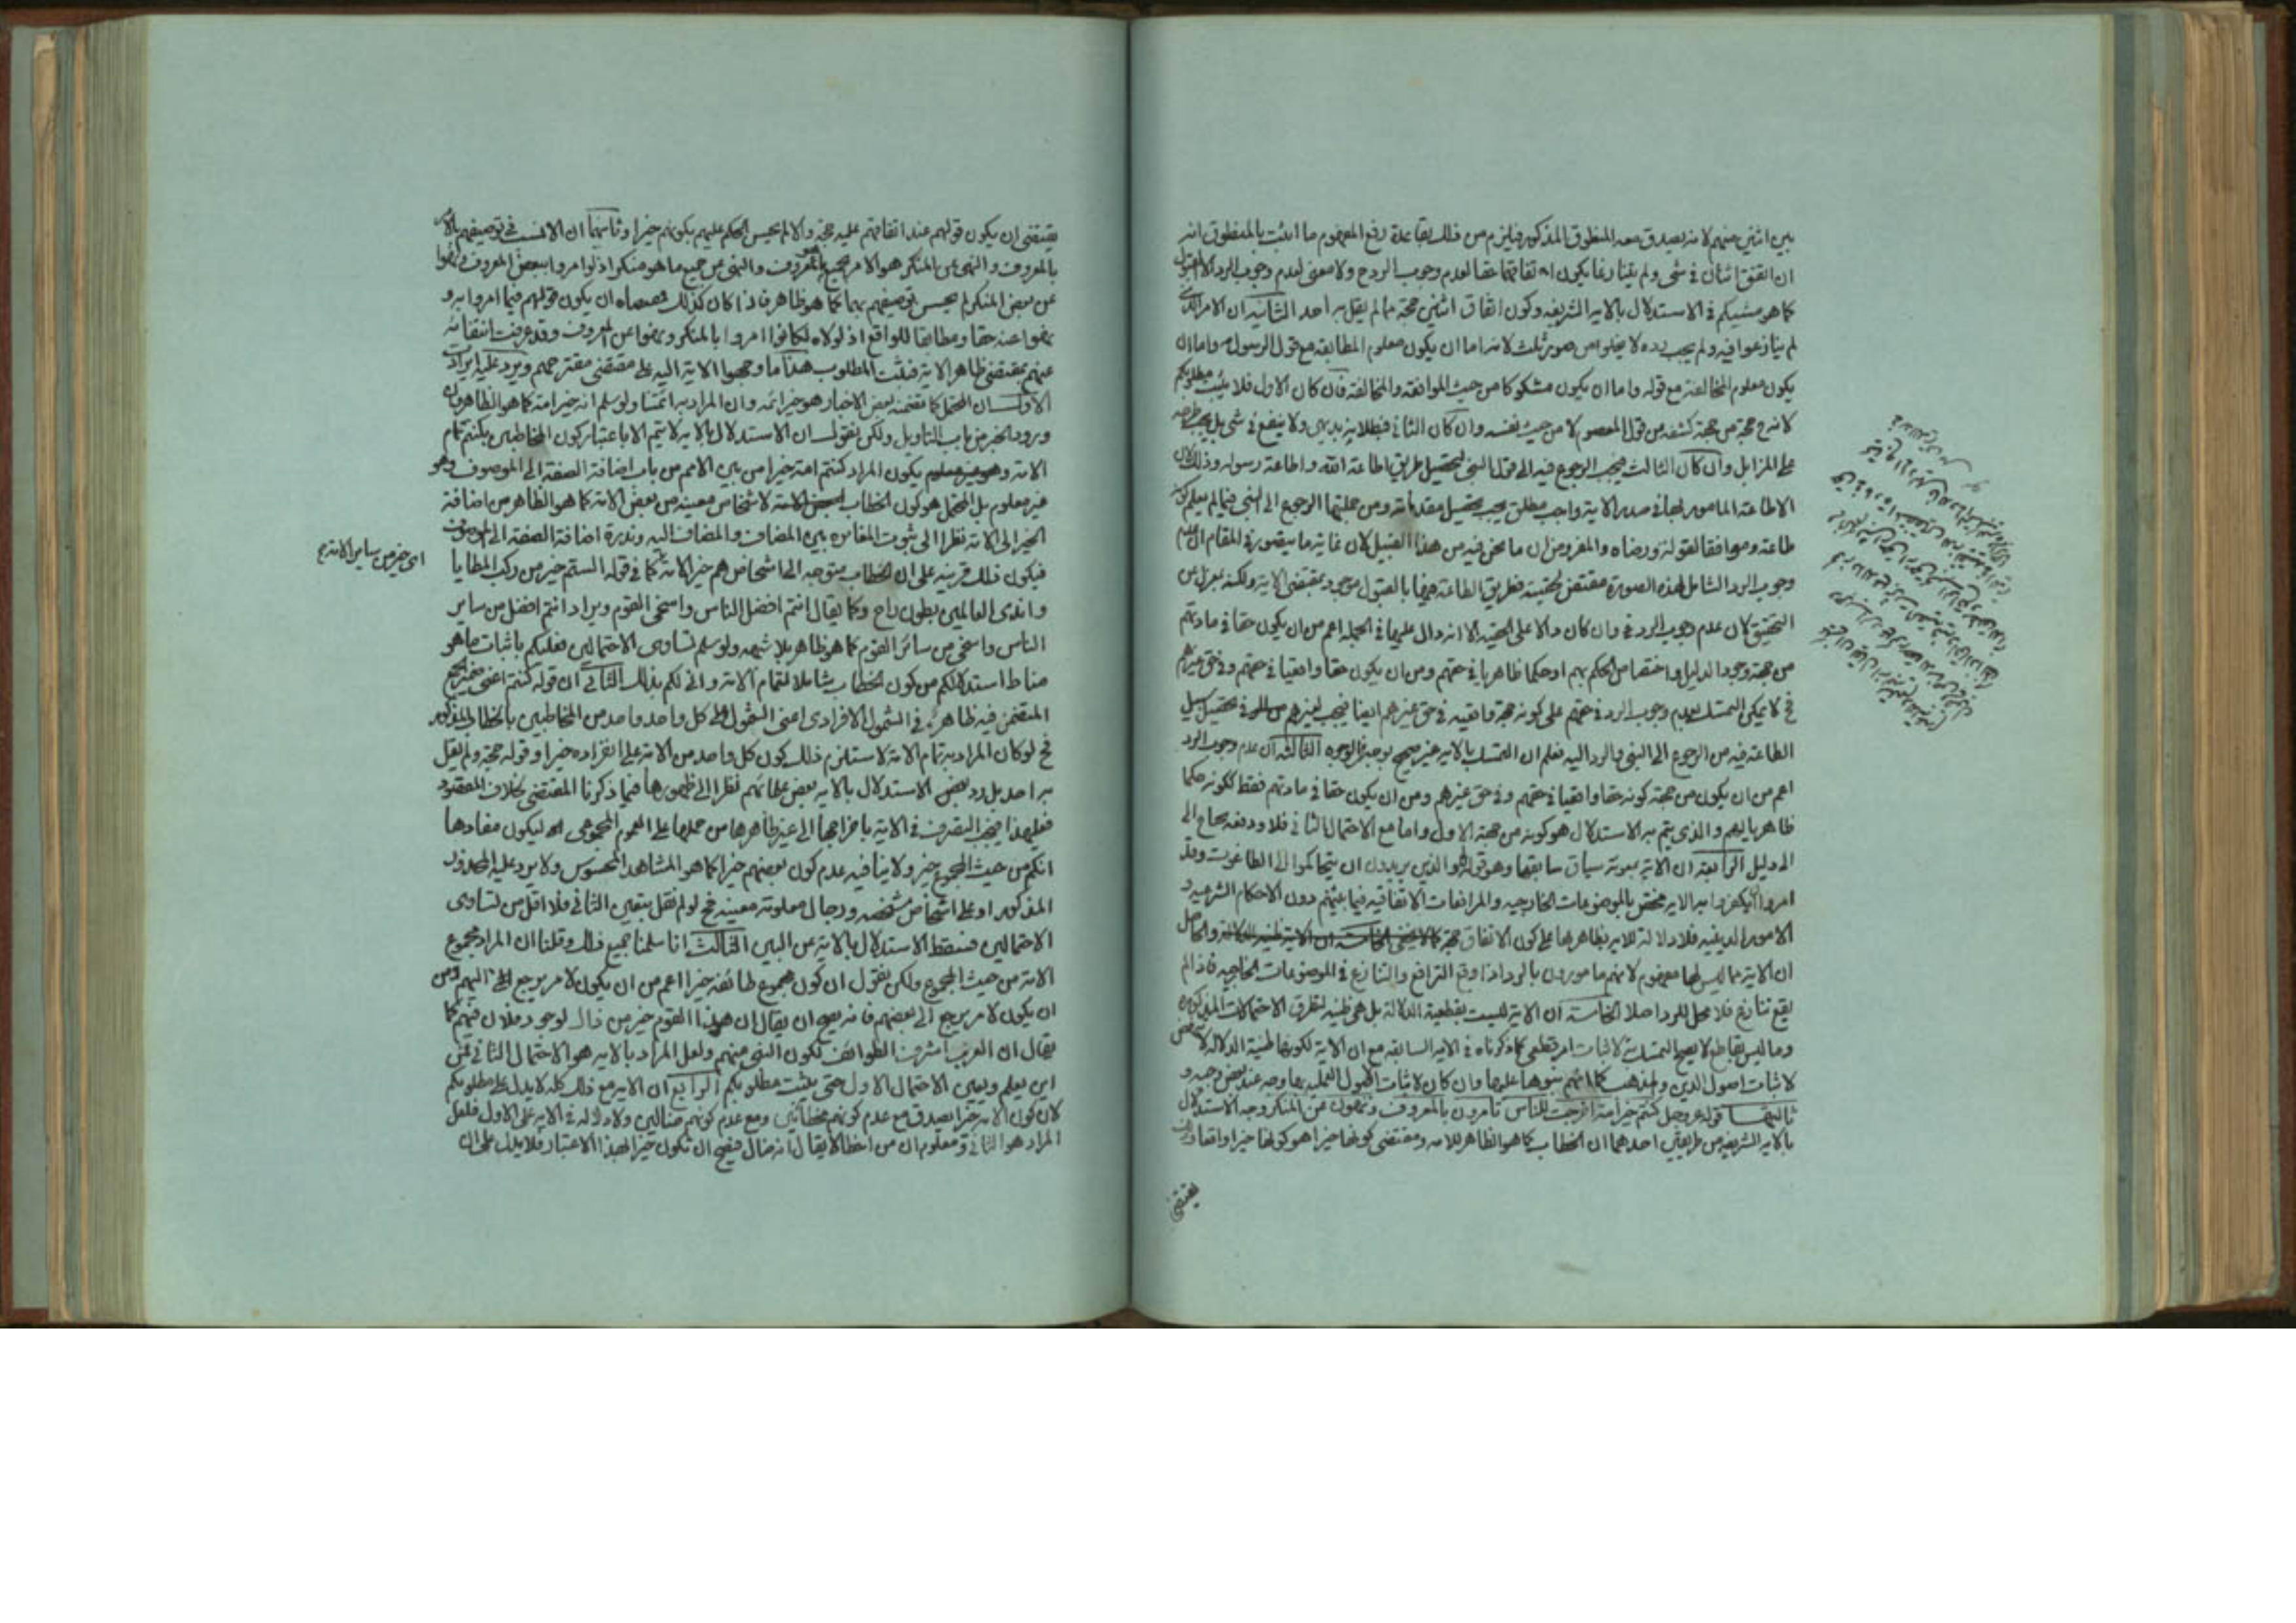 بين اثنين منهم لانه يصدق معه المنطوق المذكور فيلزم من ذلك بقاعدة رفع المفهوم ما اثبت بالمنطوق انه
ان اتفق اثنان في شئ ولم يتنازعا يكون اتفاقهما حقا لعدم وجوب الرد ح ولا معنى لعدم وجوب الرد الا القبول
كما هو مشيكم في الاستدلال بالايه الشريفه وكون اتفاق اثنين حجة مما لم يقل به احد الثانية ان الامر الذي
لم يتنازعوا فيه ولم يجب رده لا يخلو من صور ثلث لانه اما ان يكون معلوم المطابقة مع قول الرسول ص واما ان
يكون معلوم المخالفة مع قوله واما ان يكون مشكوكا من حيث الموافقة والمخالفة فان كان الاول فلا يثبت مطلوبكم
لانه ح حجة من جهة كشفه من قول المعصوم لا من حيث نفسه وان كان الثاني فبطلانه بديهى ولا ينفع في شئ بل يجب طرحه
على المزابل وان كان الثالث فيجب الرجوع فيه الى قول النبى لتحصيل طريق اطاعة الله واطاعة رسوله وذلك لان
الاطاعة المامور بها في صدر الاية واجب مطلق يجب تحصيل مقدماته ومن جملتها الرجوع الى النبي فيما لم يعلم كونه
طاعة وموافقا لقوله ورضاه والمفروض ان ما نحن فيه من هذا القبيل لان غاية ما يتصور في المقام ان عدم
وجوب الرد الشامل لهذه الصورة مقتض لحقيته فطريق الطاعة فيها بالقبول موجود بمقتضى الاية ولكنه بمعزل من
التحقيق لان عدم وجوب الرد في وان كان دالا على الحقية الا انه دال عليها في الجملة اعم من ان يكون حقا في مادتهم
من جهة وجود الدليل واختصاص الحكم بهم او حكما ظاهريا في حقهم ومن ان يكون حقا واقعيا في حقهم وفي حق غيرهم
فح لا يمكن التمسك بعدم وجوب الرد في حقهم على كونه حجة واقعية في حق غيرهم ايضا فيجب لغيرهم في تحصيل سبيل
الطاعة فيه من الرجوع الى النبي والرد اليه فعلم ان التمسك بالايه غير صحيح بوجه من الوجوه الثالثة ان عدم وجوب الرد
اعم من ان يكون من جهة كونه حقا واقعيا في حقهم وفي حق غيرهم ومن ان يكون حقا في مادتهم فقط لكونه حكما
ظاهريا لهم والذي يتم به الاستدلال هو كونه من جهة الاول واما مع الاحتمال الثاني فلا ودفعه يحتاج الى
الى دليل الرابعة ان الاية بمعونة سياق سابقها وهو قوله والذين يريدون ان يتحاكموا الى الطاغوت وقد
امروا ان يكفروا به الاية مختص بالموضوعات الخارجية والمرافعات الاتفاقية فيما بينهم دون الاحكام الشرعية و
الامور الدينية فلا دلالة للاية بظاهرها على كون الاتفاق حجة والحاصل
ان الاية مما ليس لها مفهوم لانهم مامورون بالرد اذا وقع الترافع والتنازع في الموضوعات الخارجية فاذا لم
يقع تنازع فلا محل للرد اصلا الخامسة ان الاية ليست بقطعية الدلالة بل هي ظنية لتطرق الاحتمالات المذكورة
وما ليس بقاطع لا يصح التمسك به لاثبات امر قطعي كما ذكرناه في الاية السابقة مع ان الاية لكونها ظنية الدلالة لا تنهض
لاثبات اصول الدين والمذهب كما انهم بنوها عليها وان كان لاثبات الاصول العملية بها وجه عند بعض وجيه و
ثانيهما قوله عز وجل كنتم خير امة اخرجت للناس تامرون بالمعروف وتنهون عن المنكر وجه الاستدلال
بالاية الشريفة من طريقين احدهما ان الخطاب كما هو الظاهر للامة ومقتضى كونها خيرا هو كونها خيرا واقعا
يقتضى
يقتضى ان يكون قولهم عند اتفاقهم عليه حجة والا لم يحسن الحكم عليهم بكونهم خيرا وثانيهما ان الانسب في توصيفهم بالامر
بالمعروف والنهى عن المنكر هو الامر بجميع المعروف والنهى عن جميع ما هو منكر اذ لو امروا ببعض المعروف ونهوا
عن بعض المنكر لم يحسن توصيفهم بهما كما هو ظاهر فاذا كان كذلك فمقتضاه ان يكون قولهم فيما امروا به و
نهوا عنه حقا ومطابقا للواقع اذ لولاه لكانوا امروا بالمنكر ونهوا عن المعروف وقد عرفت انتفائه
عنهم بمقتضى ظاهر الاية فثبت المطلوب هذا ما وجهوا الاية اليه على مقتضى مقترحهم ويرد عليه ايرادات
الاول ان المحتمل كما تضمنه بعض الاخبار هو خير ائمة وان المراد به ائمتنا ولو سلم انه خير امة كما هو الظاهر وان
ورود الخبر من باب التاويل ولكن نقول ان الاستدلال بالاية لا يتم الا باعتبار كون المخاطبين بكنتم تمام
الامة وهو غير معلوم يكون المراد كنتم امة خيرا من بين الامم من باب اضافة الصفة الى الموصوف وهو
غير معلوم بل المحتمل هو كون الخطاب لاشخاص معينة من بعض الامة كما هو الظاهر من اضافة
الخير الى الامة نظرا الى ثبوت المغايرة بين المضاف والمضاف اليه وندرة اضافة الصفة الى الموصوف
فيكون ذلك قرينة على ان الخطاب متوجه الى اشخاص هم خير الامة كما في قوله الستم خير من ركب المطايا
واندى العالمين بطون راح وكما يقال انتم افضل الناس واسخى القوم ويراد انتم افضل من ساير
الناس واسخى من سائر القوم كما هو ظاهر بلا شبهه ولو سلم تساوى الاحتمالين فعليكم باثبات ما هو
مناط استدلالكم من كون الخطاب شاملا لتمام الامة وانى لكم بذلك الثاني ان قوله كنتم اعنى ضمير الجمع
المتضمن فيه ظاهرة في الشمول الافرادى اعنى الشمول على كل واحد واحد من المخاطبين بالخطاب المذكور
فح لو كان المراد به تمام الامة لاستلزم ذلك كون كل واحد من الامة على انفراده خيرا وقوله حجة ولم يقل
به احد بل رد بعض الاستدلال بالاية بعض علمائهم نظرا الى ظهورها فيما ذكرنا المقتضى بخلاف المقصود
فعلى هذا فيجب التصرف في الاية باخراجها الى غير ظاهرها من حملها على العموم المجموعى ليكون مفادها
انكم من حيث المجموع خير ولا ينافيه عدم كون بعضهم خيرا كما هو المشاهد المحسوس ولا يرد عليه المحذور
المذكور او على اشخاص مشخصة ورجال معلومة معينة فح لو لم نقل بتعين الثاني فلا اقل من تساوى
الاحتمالين فسقط الاستدلال بالاية عن البين الثالث انا سلمنا جميع ذلك وقلنا ان المراد مجموع
الامة من حيث المجموع ولكن نقول ان كون مجموع طائفة خيرا اعم من ان يكون لامر يرجع الى كلهم ومن
ان يكون لامر يرجع الى بعضهم فانه يصح ان يقال ان هذا القوم خير من ذاك لوجود فلان فيهم كما
يقال ان العرب اشرف الطوائف لكون النبى منهم ولعل المراد بالاية هو الاحتمال الثاني فمن
اين يعلم ويعين الاحتمال الاول حتى يثبت مطلوبكم الرابع ان الاية مع ذلك كله لا يدل على مطلوبكم
لان كون الامة خيرا يصدق مع عدم كونهم مخطائين ومع عدم كونهم ضالين ولا دلالة في الاية على الاول فلعل
المراد هو الثاني ومعلوم ان من اخطا لا يقال انه ضال فيصح ان تكون خيرا بهذا الاعتبار فلا يدل على ان
اى خير من ساير الامة